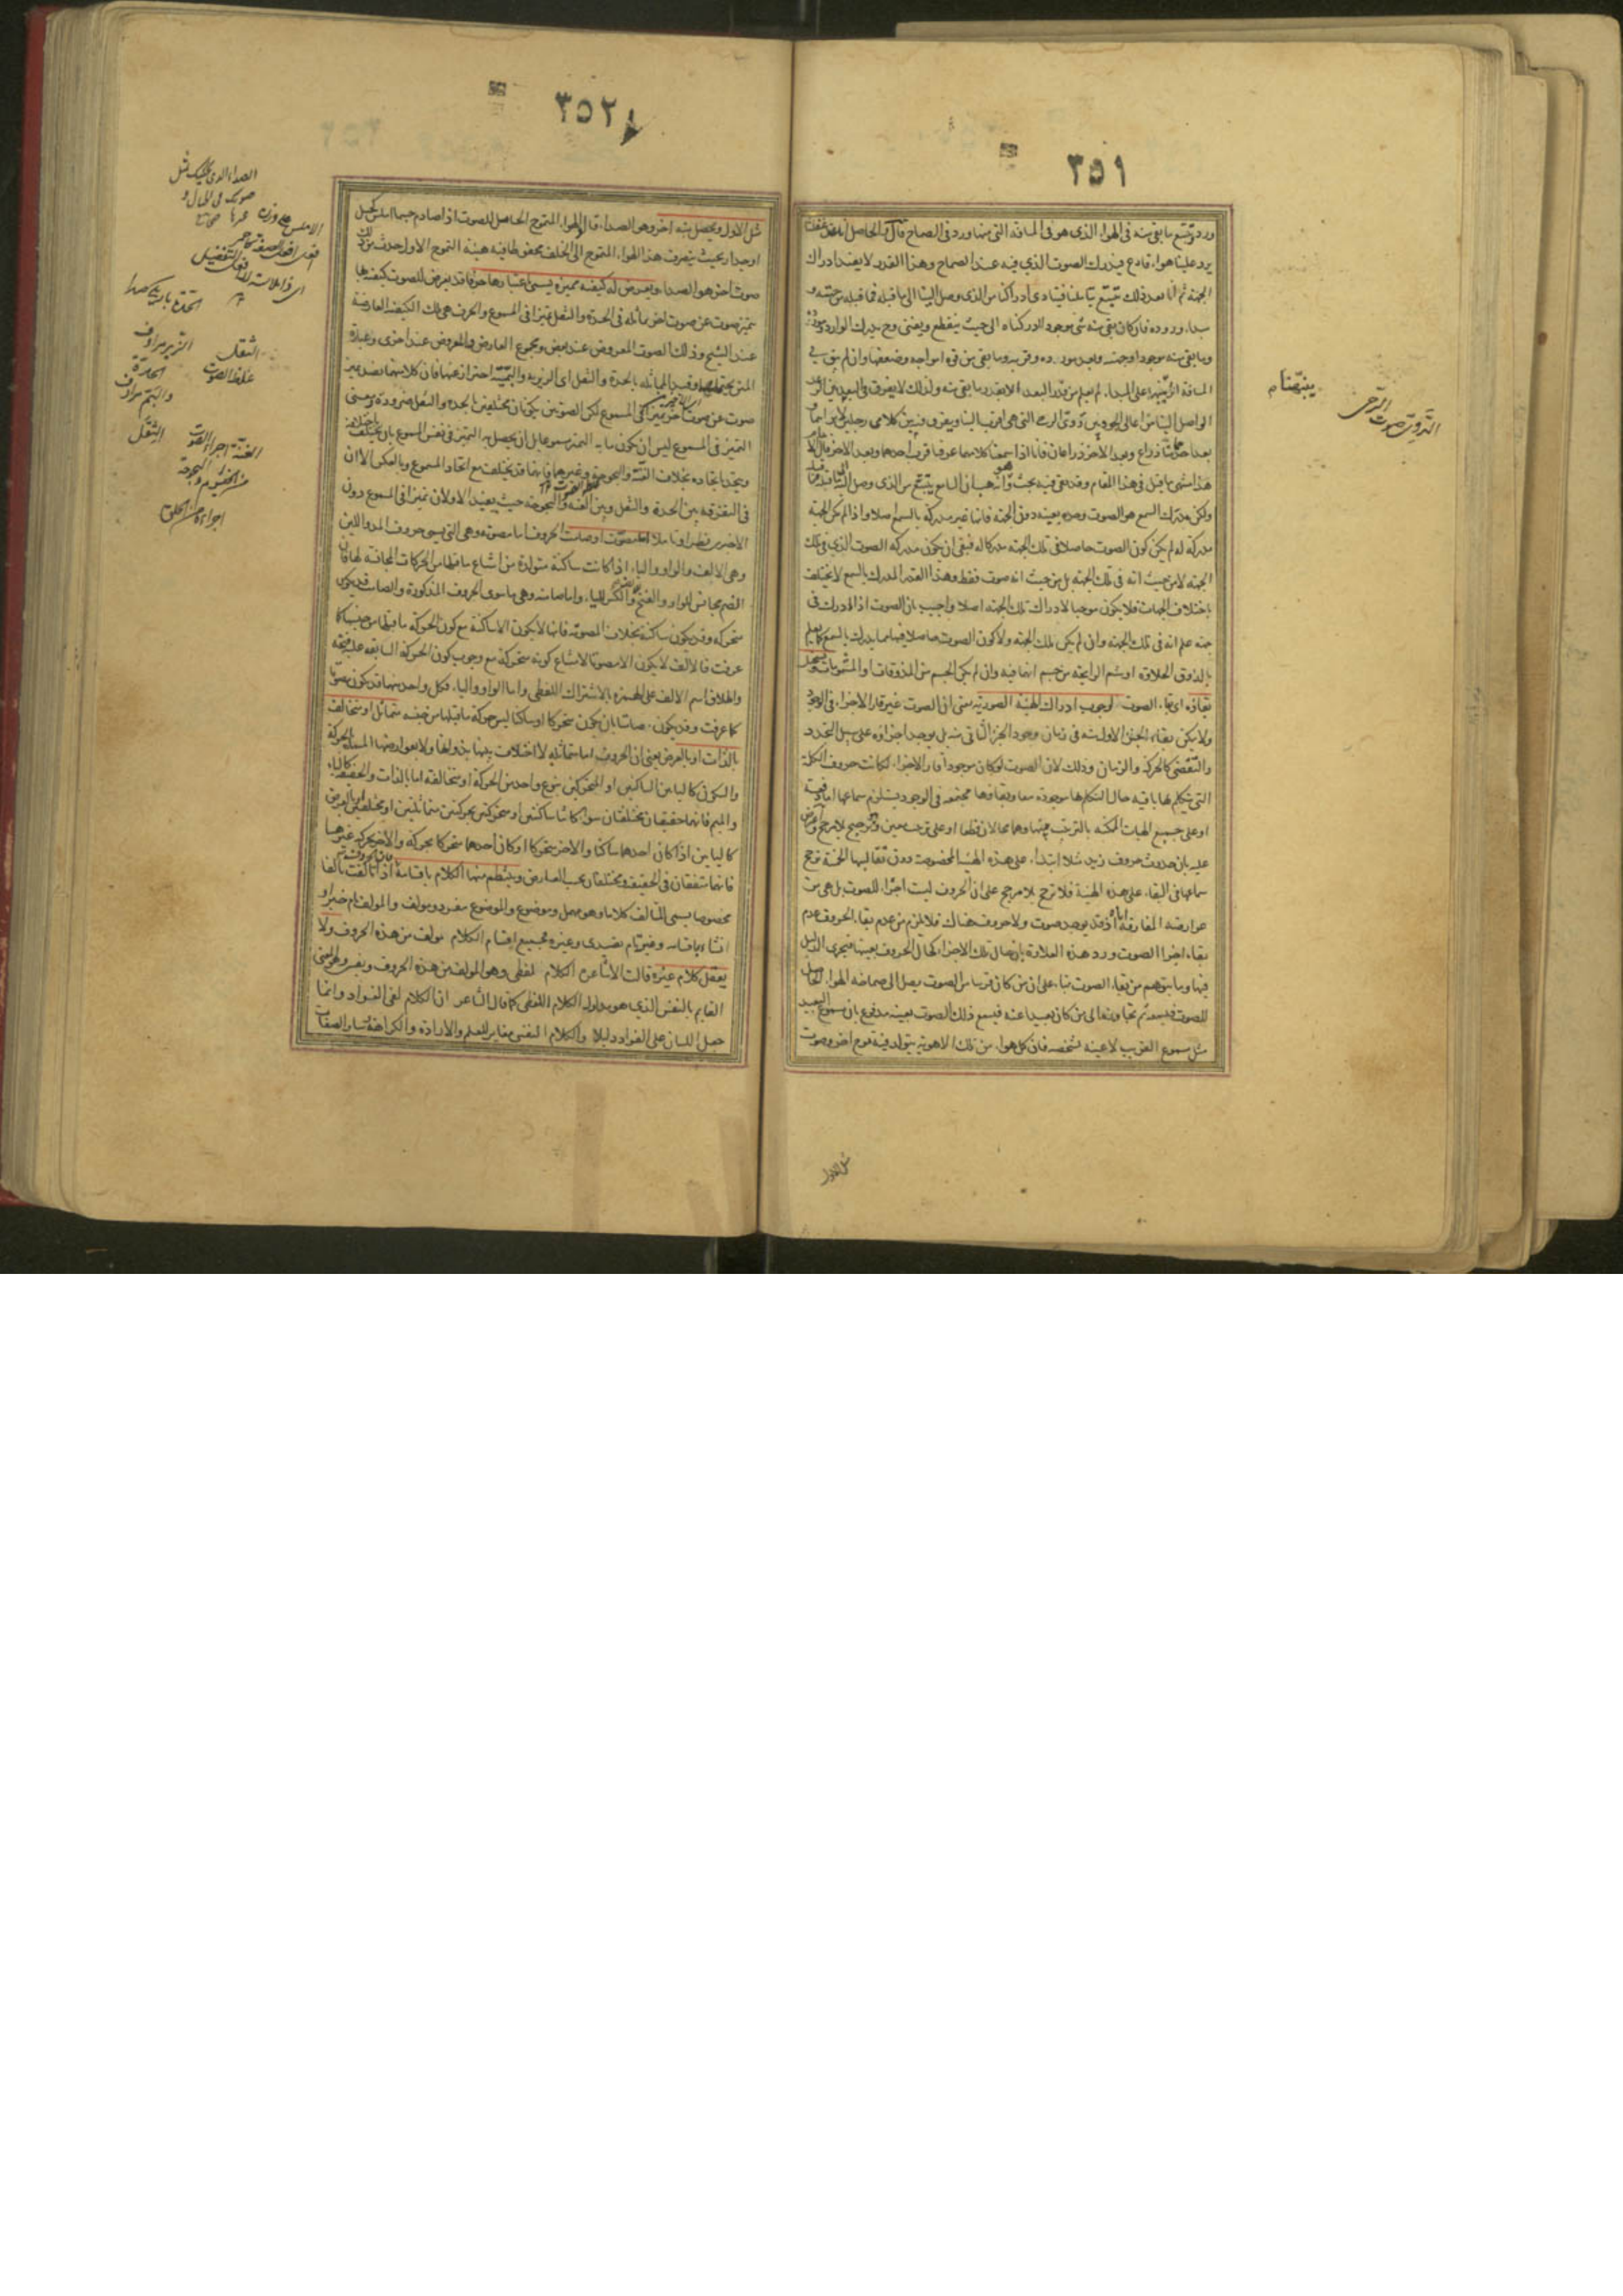 ٣٥١
ورد وتتبع ما بقى منه فى الهواء الذى هو فى المسافة التى منها ورد فى الصماخ قال الحاصل
يرد علينا هواء قادع فيدرك الصوت الذى فيه عند الصماخ وهذا القدر لا يفيد ادراك
الجهة ثم انا بعد ذلك نتتبع بتأملنا فيتادى ادراكنا من الذى وصل الينا الى ما قبله فما قبله من جهته و
مبدأ وروده فان كان بقى منه شئ موجود ادركناه الى حيث ينقطع ويفنى وح يدرك الوارد
وما بقى منه موجودا وجهته وبعد مورده وقربه وما بقى من قوة امواجه وضعفها وان لم يبق فى
المسافة اثر ينتهى على المبدأ لم يعلم من قدر البعد الا بقدر ما بقى منه ولذلك لا يفرق فى البعد بين الرعد
الواصل الينا من اعالى الجو وبين دوى الرحى التى هى اقرب الينا ويفرق فيه بين كلامى رجلين
بعد احدهما ذراع وبعد الاخر ذراعان فانا اذا سمعنا كلامهما عرفنا قرب احدهما وبعد الاخر قال
هذا منتهى ما قيل فى هذا المقام وقد بقى فيه بحث وهو انه هب ان السامع يتتبع من الذى وصل اليه الى ما قبله
ولكن مدرك السمع هو الصوت وحده بعينه دون الجهة فانها غير مدركة بالسمع اصلا واذا لم تكن الجهة
مدركة له لم يكن كون الصوت حاصلا فى تلك الجهة مدركا له فبقى ان يكون مدركه الصوت الذى فى تلك
الجهة لا من حيث انه فى تلك الجهة بل من حيث انه صوت فقط وهذا القدر المدرك بالسمع لا يختلف
باختلاف الجهات فلا يكون موجبا لادراك تلك الجهة اصلا واجيب بان الصوت اذا ادرك فى
جهة علم انه فى تلك الجهة وان لم يكن تلك الجهة ولا كون الصوت حاصلا فيها مما يدرك بالسمع كما يعلم
بالذوق الحلاوة او بشم الرائحة من جسم انها فيه وان لم يكن الجسم من المذوقات او المشمومات ويستحيل
بقاؤه اى بقاء الصوت لوجوب ادراك الهيئة الصورية يعنى ان الصوت غير قار الاجزاء فى الوجود
ولا يمكن بقاء الجزء الاول منه فى زمان وجود الجزء الثانى منه بل يوجد اجزاؤه على سبيل التجدد
والتقضى كالحركة والزمان وذلك لان الصوت لو كان موجودا قار الاجزاء لكانت حروف الكلمة
التى يتكلم بها باقية حال التكلم بها موجودة معا وبقاؤها مجتمعة فى الوجود يستلزم سماعها اما دفعة
او على جميع الهيئات الممكنة بالترتيب فيها وهما محالان قطعا او على ترتيب معين وهو ترجيح بلا مرجح واعترض
عليه بان حدوث حروف زيد مثلا ابتداء على هذه الهيئة المخصوصة دون تقاليبها الخمسة ترجح
سماعها فى البقاء على هذه الهيئة فلا ترجح بلا مرجح على ان الحروف ليست اجزاء للصوت بل هى من
عوارضه المفارقة اياه اذ قد يوجد صوت ولا حروف هناك فلا يلزم من عدم بقاء الحروف عدم
بقاء اجزاء الصوت ورد هذه العلاوة بان حال تلك الاجزاء كحال الحروف بعينها فيجرى الدليل
فيها وما يتوهم من بقاء الصوت بناء على ان من كان قريبا من الصوت يصل الى صماخه الهواء الحامل
للصوت فيسمعه ثم يتجاوزه الى من كان بعيدا عنه فيسمع ذلك الصوت بعينه مدفوع بان مسموع البعيد
مثل مسموع القريب لا عينه بشخصه فان كل هواء من تلك الاهوية يتولد فيه تموج اخر وصوت
الدوى صوت الرحى
مثل الاول
٣٥٢
مثل الاول ويحصل منه اخر وهو الصداء قال الهواء المتموج الحامل للصوت اذا صادم جسما املس كجبل
او جدار بحيث يصرف هذا الهواء المتموج الى الخلف محفوظا فيه هيئة التموج الاول حدث من ذلك
صوت اخر هو الصداء ويعرض له كيفية مميزة يسمى باعتبارها حرفا قد يعرض للصوت كيفية بها
يتميز صوت عن صوت اخر مماثله فى الحدة والثقل تميزا فى المسموع والحرف هى تلك الكيفية العارضة
عند الشيخ وذلك الصوت المعروض عند بعض ومجموع العارض والمعروض عند اخرى وعبارة
المتن يحتملها وقيد المماثلة بالحدة والثقل اى الزيرية والبمية احتراز عنهما فان كلا منهما يفيد تميز
صوت عن صوت اخر تميزا فى المسموع لكن الصوتين يكونان مختلفين بالحدة والثقل ضرورة ومعنى
التميز فى المسموع ليس ان يكون ما به التميز مسموعا بل ان يحصل به التميز فى نفس المسموع بان يختلف باختلافه
ويتحد باتحاده بخلاف الغنة والبحوحة وغيرهما فانها قد يختلف مع اتحاد المسموع وبالعكس الا ان
فى التفرقة بين الحدة والثقل وبين الغنة والبحوحة حيث يفيد الاولان تميزا فى المسموع دون
الاخيرين نظرا وتاملا اما مصوت او صامت الحروف اما مصوتة وهى التى يسمى حروف المد واللين
وهى الالف والواو والياء اذا كانت ساكنة متولدة من اشباع ما قبلها من الحركات المجانسة لها فان
الضم مجانس للواو والفتح للالف والكسر للياء واما صامتة وهى ما سوى الحروف المذكورة والصامت قد يكون
متحركة وقد يكون ساكنة بخلاف المصوتة فانها لا يكون الا ساكنة مع كون الحركة ما قبلها من جنسها كما
عرفت فالالف لا يكون الا مصوتا لامتناع كونه متحركة مع وجوب كون الحركة السابقة عليه فتحة
واطلاق اسم الالف على الهمزة بالاشتراك اللفظى واما الواو والياء فكل واحد منهما قد يكون مصوتا
كما عرفت وقد يكون صامتا بان يكون متحركا او ساكنا ليس حركة ما قبلها من جنسه متماثل او متخالف
بالذات او بالعرض يعنى ان الحروف اما متماثلة لا اختلاف بينها بذواتها ولا بعوارضها المسماة بالحركة
والسكون كالياءين الساكنين او المتحركين بنوع واحد من الحركة او متخالفة اما بالذات والحقيقة كالياء
والميم فانهما حقيقتان مختلفتان سواء كانتا ساكنتين او متحركتين بحركتين متماثلتين او مختلفتين او بالعرض
كالياءين اذا كان احدهما ساكنا والاخر متحركا او كان احدهما متحركا بحركة والاخر بحركة غيرها
فانهما متفقتان فى الحقيقة ومختلفتان بحسب العارض وينتظم منها الكلام باقسامه اذا تألفت تألفا
مخصوصا يسمى المتألف كلاما وهو مهمل وموضوع والموضوع مفرد ومولف والمولف تام خبر او
انشاء باقسامه وغير تام تقييدى وغيره فجميع اقسام الكلام مولف من هذه الحروف ولا
يعقل كلام غيره قالت الاشاعرة الكلام لفظى وهو المولف من هذه الحروف ونفسى وهو المعنى
القايم بالنفس الذى هو مدلول الكلام اللفظى كما قال الشاعر ان الكلام لفى الفؤاد وانما
جعل اللسان على الفؤاد دليلا والكلام النفسى مغاير للعلم والارادة والكراهة وساير الصفات
الثقل
غلظ الصوت
الزير مرادف
الحدة
والبم مرادف
الثقل
الغنة اجراء الصوت
من الخيشوم والبحوحة
اجراءه من الحلق